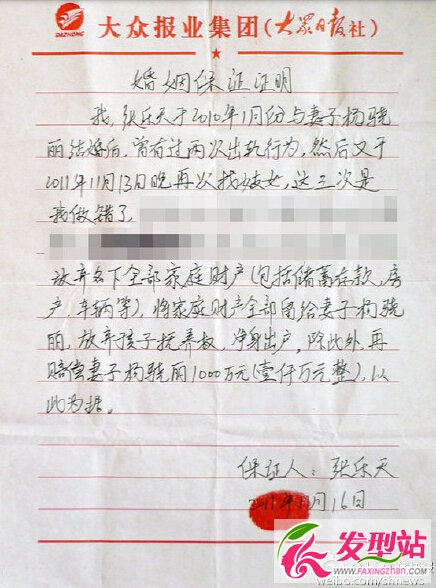 DAZHONG
大众报业集团(大众日报社)
婚姻保证证明
我,张乐天于2010年1月份与妻子杨骁
丽结婚后,曾有过两次出轨行为,然后又于
2011年11月13日晚再次找妓女,这三次是
我做错了
放弃名下全部家庭财产(包括储蓄存款,房
产,车辆等),将家庭财产全部留给妻子杨骁
丽,放弃孩子抚养权,净身出户,除此外,再
赔偿妻子杨骁丽1000万元(壹仟万元整),以
此为据。
保证人:张乐天
2011年11月16日
weibo.com/cnnews
发型站
www.FAXINGZHAN.com